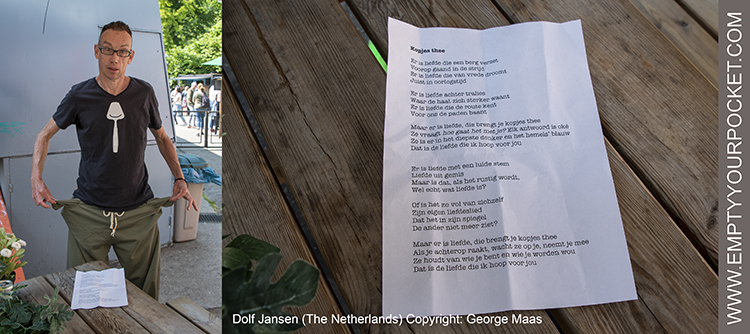 Kopjes thee
Er is liefde die een berg verzet
Voorop gaand in de strijd
Er is liefde die van vrede droomt
Juist in oorlogstijd
Er is liefde achter tralies
Waar de haat zich sterker waant
Er is liefde die de route kent
Voor ons de paden baant
Maar er is liefde, die brengt je kopjes thee
Ze vraagt hoe gaat het met je? Elk antwoord is oké
Ze is er in het diepste donker en het hemels' blauw
Dat is de liefde die ik hoop voor jou
Er is liefde met een luide stem
Liefde uit gemis
Maar is dat, als het rustig wordt,
Wel echt wat liefde is?
Of is het zo vol van zichzelf
Zijn eigen liefdeslied
Dat het in zijn spiegel
De ander niet meer ziet?
Maar er is liefde, die brengt je kopjes thee
Als je achterop raakt, wacht ze op je, neemt je mee
Ze houdt van wie je bent en wie je worden wou
Dat is de liefde die ik hoop voor jou
Dolf Jansen (The Netherlands) Copyright: George Maas
WWW.EMPTYYOURPOCKET.COM